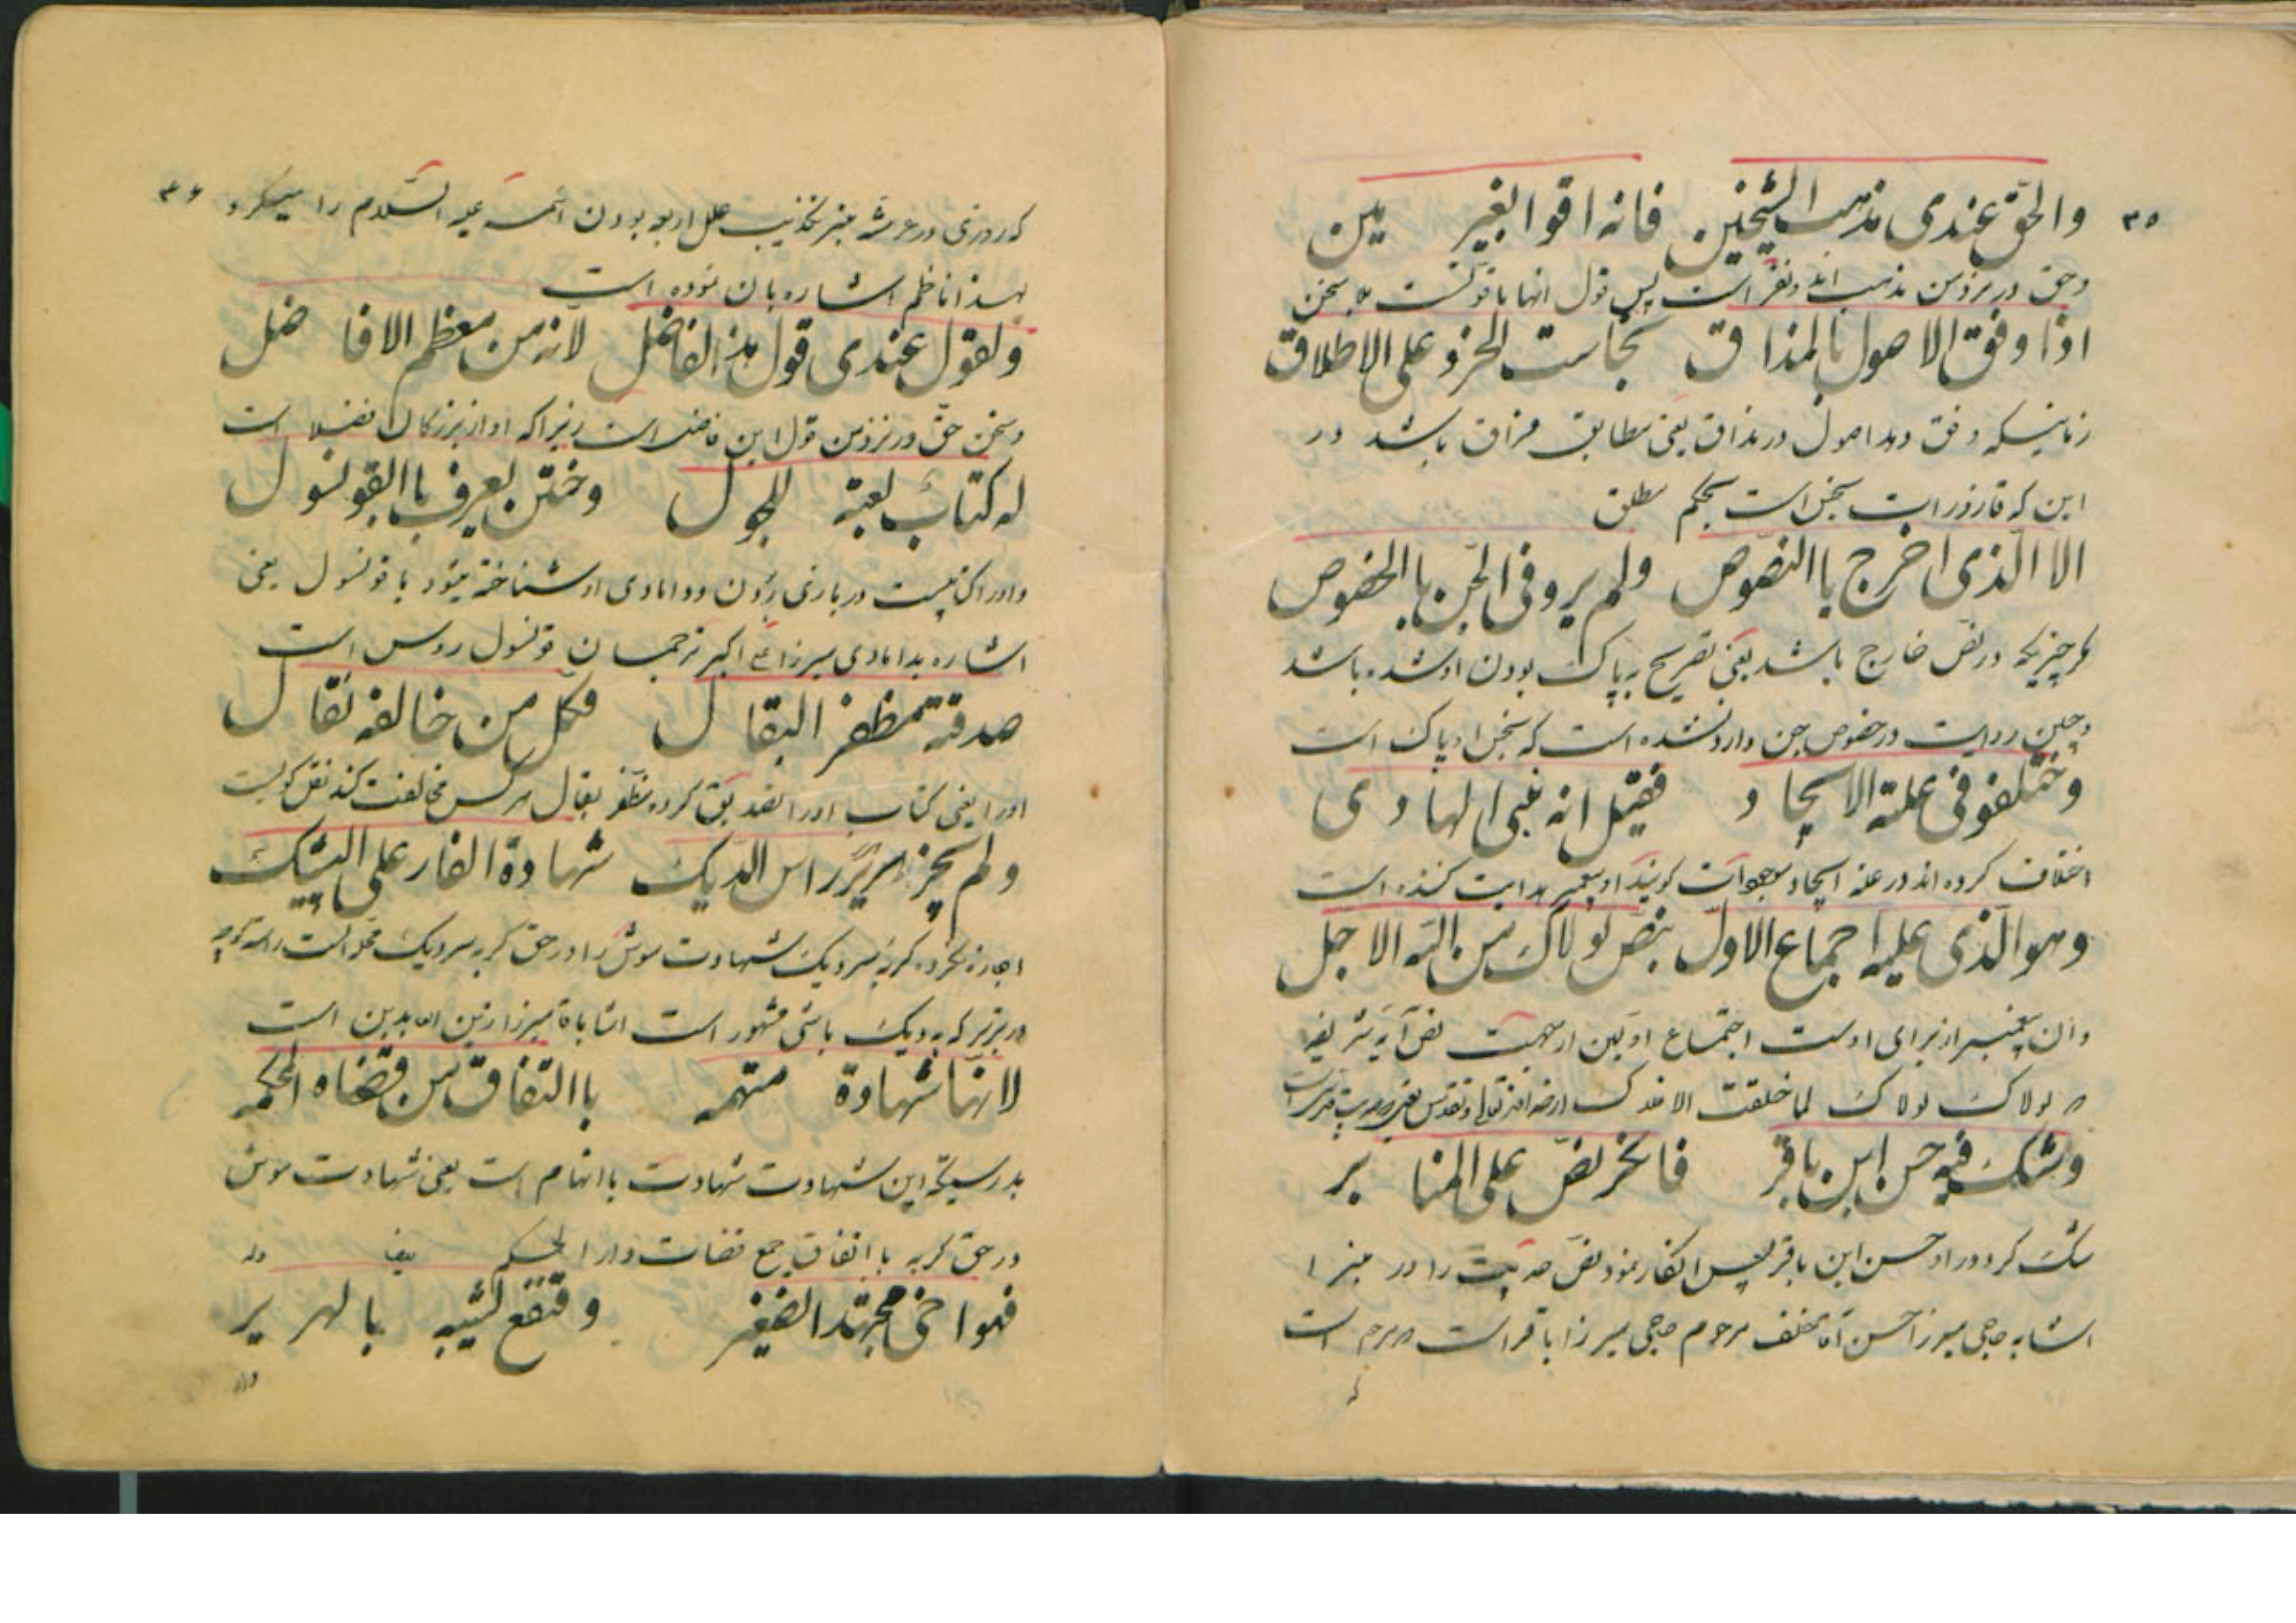 ۳۵
والحق عندی مذهب الشیخین فانه اقوا بغیر مین
وحق در نزد من مذهب اند ونفر است پس قول انها باقوتست بلا سخن
اذا وفق الاصول بالمذاق نجاست الخرو علی الاطلاق
زمانیکه وفق دهد اصول در مذاق یعنی مطابق مزاق باشد در
این که قازورات نجس است بحکم مطلق
الا الذی اخرج باالنصوص ولم یرو فی الجن باالخصوص
هر چیزیکه در نص خارج باشد یعنی تصریح به پاک بودن او شده باشد
وچنین روایت در خصوص جن وارد نشده است که نجس او پاک است
وختلفو فی علته الایجاد فقیل انه نبی الهادی
اختلاف کرده اند در علة ایجاد موجودات گویند او پیغمبر هدایت کننده است
وهو الذی علیه اجماع الاول بنص لولاک من الله الاجل
وان پیغمبر از برای اوست اجتماع اولین از جهت نص آیه شریفه
لولاک لولاک لما خلقت الافلاک
وشک فیه حسن ابن باقر فانکر نص علی المنابر
شک کرد در او حسن ابن باقر پس انکار نمود نص حدیث را در منبرا
اشابه حاجی میرزا حسن آقا خلف مرحوم حاجی میرزا باقر است مرحوم است
که
۳۶
که روزی در عرشه منبر تکذیب علل اربعه بودن ائمه علیه السلام را میکرد
بهذا ناظم اشاره بان نموده است
ولقول عندی قول هذ الفاضل لانه من معظم الافاضل
وسخن حق در نزد من قول این فاضل است زیراکه او از بزرگان فضلا است
له کتاب لعبة للجول وختن یعرف باالقونسول
واورا کتابیست در بازی جول ودامادی او شناخته میشود باقونسول یعنی
اشاره بدامادی میرزا علی اکبر ترجمان قونسول روس است
صدقة مظفر البقال فکل من خالفه نقال
اورا یعنی کتاب اورا تصدیق کرده مظفر بقال هرکس مخالفت کند نقل گوست
ولم یجز هریرراس الدیک شهادة الفار علی البیشک
اجازه نکرده گربه سردیک شهادت موش را در حق گربه سردیک
در تبریز که به دیک باشی مشهور است اشا باقا میرزا زین العابدین است
لانها شهادة متهمه باالتفاق من قضاه المحکمه
بدرستیکه این شهادت شهادت باانهام است یعنی شهادت موش
در حق گربه باانفاق جمع قضات دار الحکم
فهوا خی مجتهد الضغیر وقتقع لشیبه بالهریر